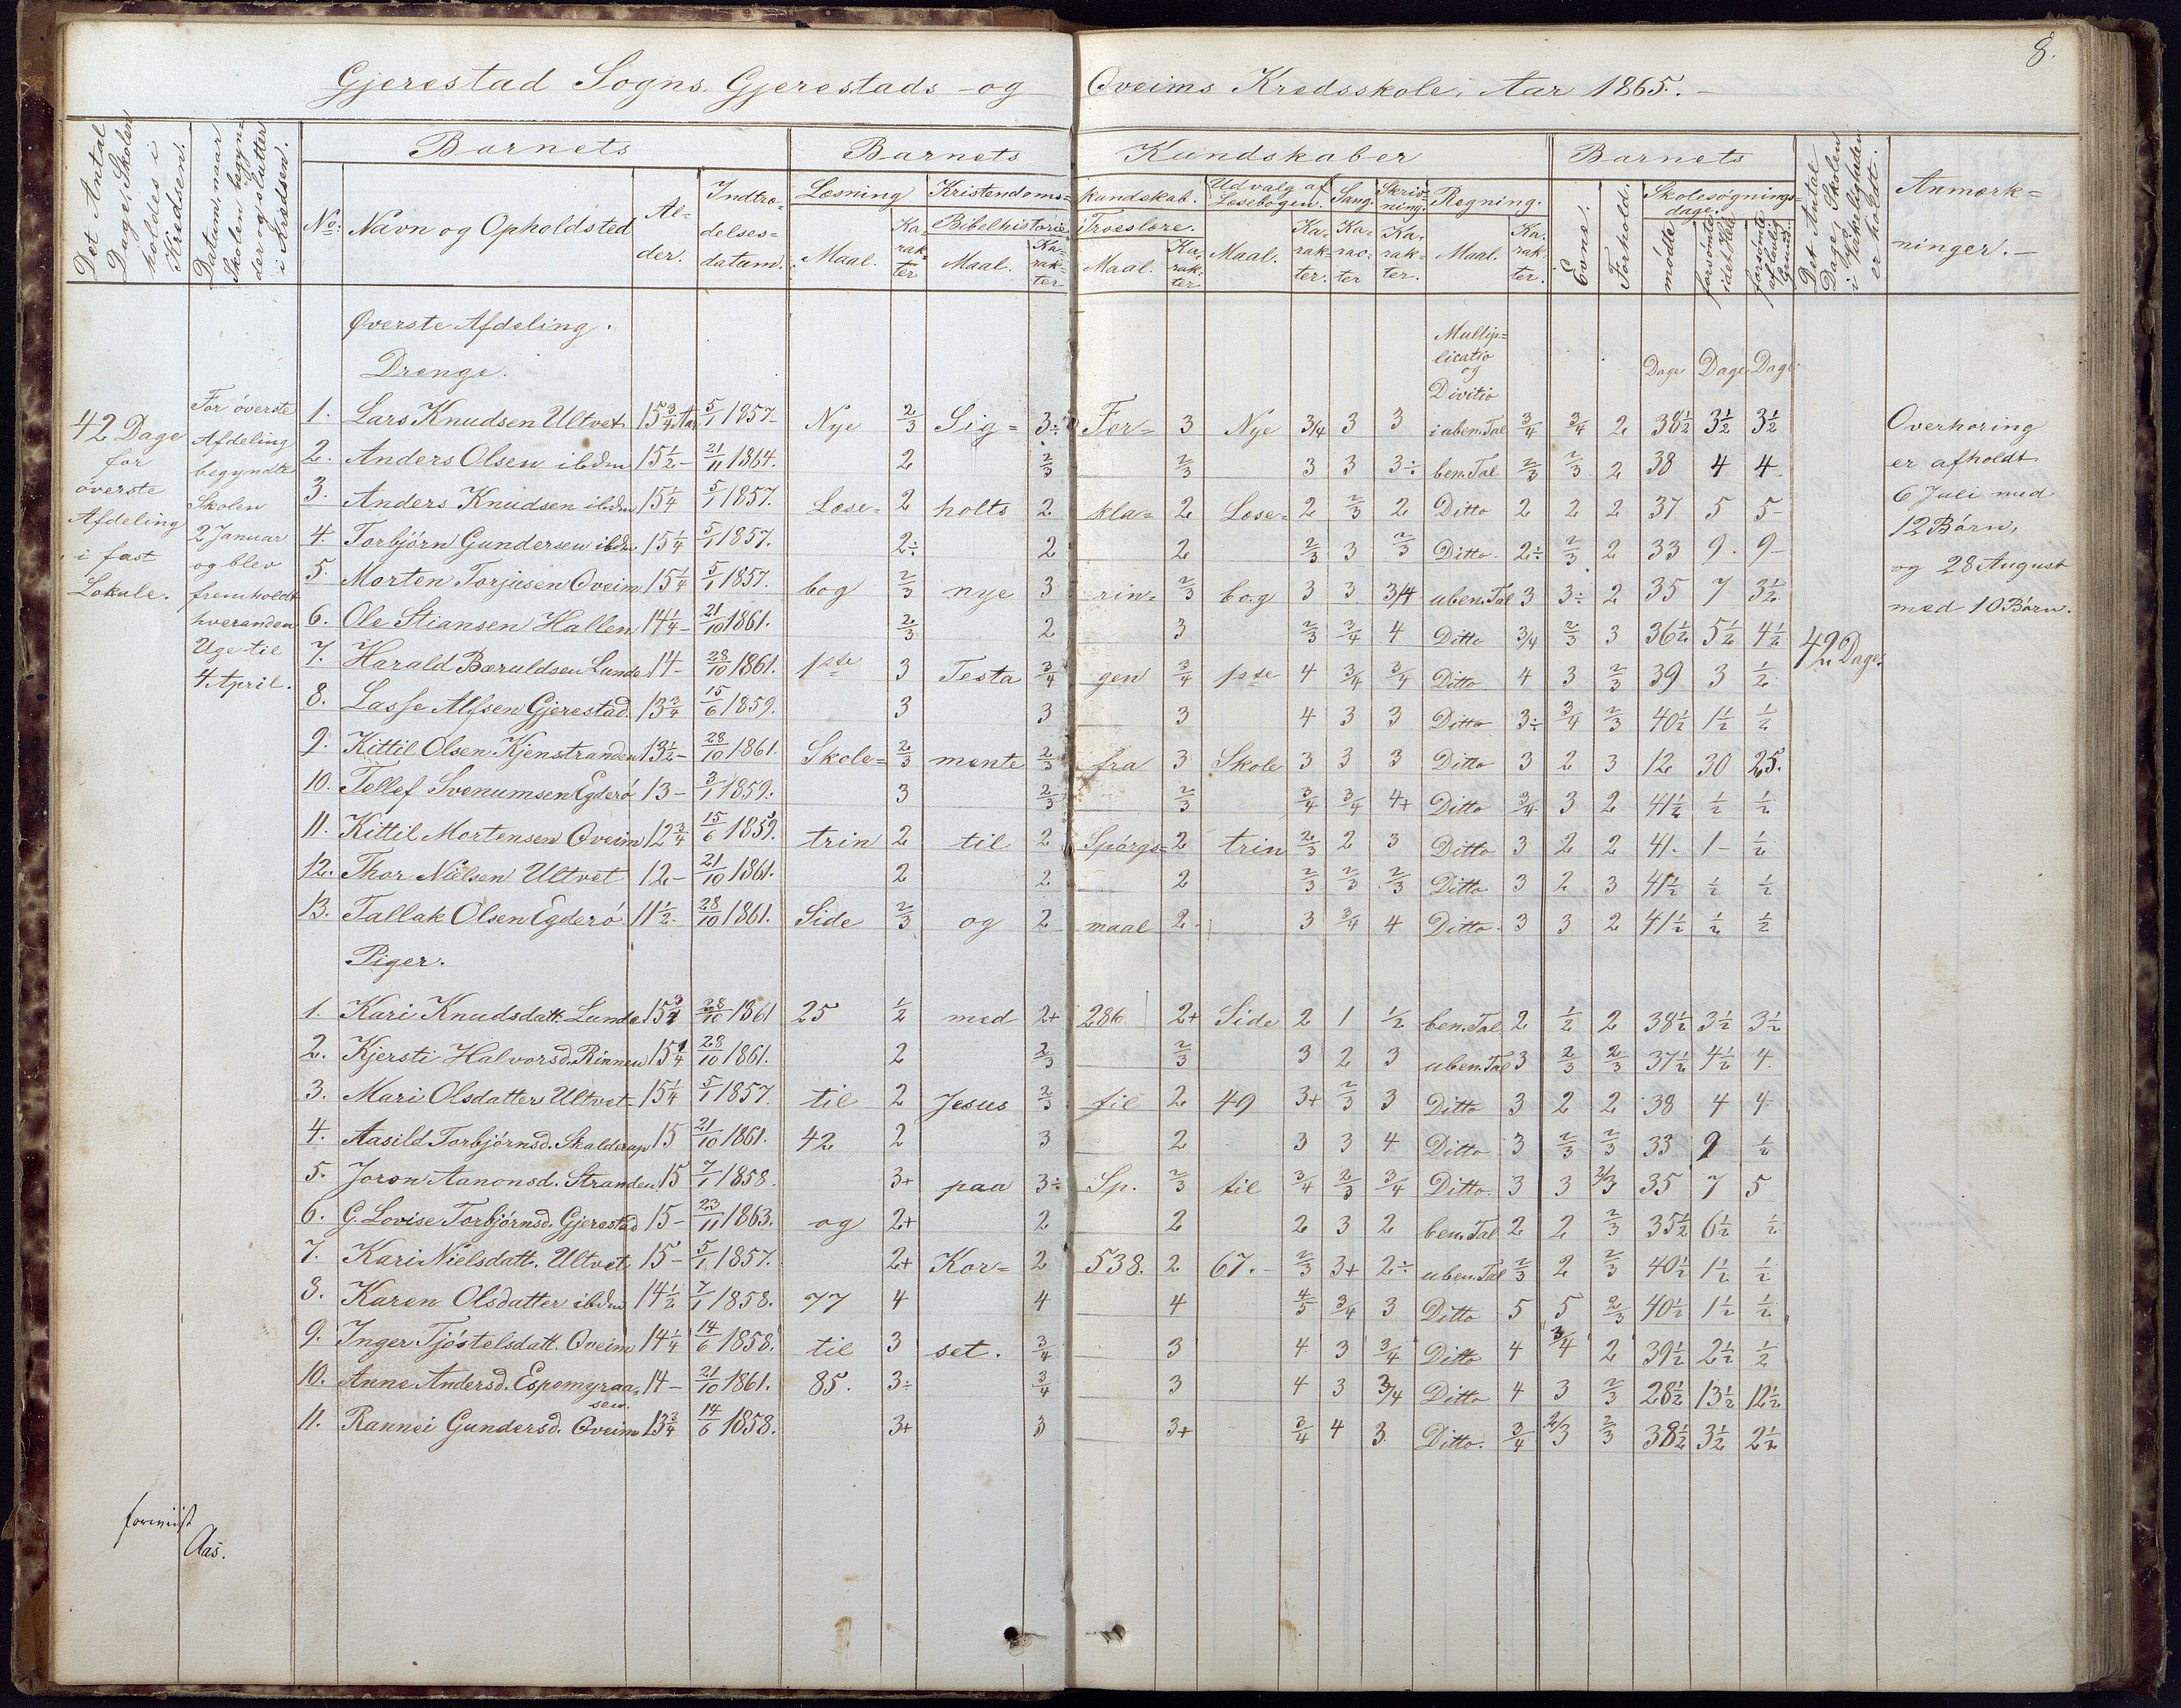 8.
Gjerestad Sogns. Gjerestads - og Oveims Kredsskole, Aar 1865. -
Det Antal Dage, Skolen holdes i Kredsen.
Datum, naar Skolen begynder og slutter i Kredsen.
Barnets
No: Navn og Opholdsted
Alder.
Indtrædelsesdatum.
Barnets Kundskaber
Læsning Kristendomskundskab. Udvalg af Læsebogen. Sang. Skrivning. Regning.
Bibelhistorie Troeslære.
Maal. Karakter Maal. Karakter Maal. Karakter Maal. Karakter. Karakter Karakter. Maal. Karakter.
Barnets
Evne. Forhold. Skolesøgningsdage.
mødte forsømte i det Hele forsømte af lovlig Grund.
Det Antal Dage Skolen i Virkeligheden er holdt.
Anmærkninger. -
Øverste Afdeling.
Drenge.
Multiplicatio
og
Divitio
Dage Dage Dage
42 Dage
for
øverste
Afdeling
i fast
Lokale.
For øverste
Afdeling
begyndte
Skolen
2 Januar
og blev
fremholdt
hveranden
Uge til
4 April.
1. Lars Knudsen Ultvet 15 3/4 Aar 5/1 1857. Nye 2/3 Sig= 3÷ For= 3 Nye 3/4 3 3 i uben. Tal 3/4 3/4 2 38 1/2 3 1/2 3 1/2
2. Anders Olsen ibdm 15 1/2 - 21/11 1864. 2 2/3 2/3 3 3 3÷ ben. Tal 2/3 2/3 2 38 4 4
3. Anders Knudsen ibdm 15 1/4 5/1 1857. Læse= 2 holts 2 kla= 2 Læse= 2 2/3 2 Ditto 2 2 2 37 5 5 -
4. Torbjörn Gundersen ibdm 15 1/4 5/1 1857. 2÷ 2 2 2/3 3 2/3 Ditto. 2÷ 2/3 2 33 9. 9 -
5. Morten Torjusen Oveim 15 1/4 5/1 1857. bog 2/3 nye 3 rin= 2/3 bog 3 3 3/4 uben. Tal 3 3÷ 2 35 7 3 1/2
6. Ole Stiansen Hallen 14 1/4 - 21/10 1861. 2/3 2 3 2/3 3/4 4 Ditto 3/4 2/3 3 36 1/2 5 1/2 4 1/2
42 Dage.
7. Harald Bæruldsen Lunde 14 - 28/10 1861. 1ste 3 Testa 3/4 gen 3/4 1ste 4 3/4 3/4 Ditto 4 3 2/3 39 3 1/2
8. Lasse Alfsen Gjerestad. 13 3/4 15/6 1859. 3 3 3 4 3 3 Ditto 3÷ 3/4 2/3 40 1/2 1 1/2 1/2
9. Kittil Olsen Kjenstranden 13 1/2 - 28/10 1861. Skole= 2/3 mente 2/3 fra 3 Skole 3 3 3 Ditto 3 2 3 12 30 25.
10. Tellef Svenumsen Egderö 13 - 3/1 1859. 3 2/3 2/3 3/4 3/4 4+ Ditto 3/4 3 2 41 1/2 1/2 1/2
11. Kittil Mortensen Oveim 12 3/4 15/6 1859. trin 2 til 2 Spörgs= 2 trin 2/3 2 3 Ditto 3 2 2 41. 1 - 1/2
12. Thor Nielsen Ultvet 12 - 21/10 1861. 2 2 2 2/3 2/3 2/3 Ditto 3 2 3 41 1/2 1/2 1/2
13. Tallak Olsen Egderö 11 1/2. 28/10 1861. Side 2/3 og 2 maal 2. 3 3/4 4 Ditto. 3 3 2 41 1/2 1/2 1/2
Overhøring
er afholdt
6 Juli med
12 Børn,
og 28 August
med 10 Børn.
Piger.
1. Kari Knudsdatt. Lunde 15 28/10 1861 25 1/2 med 2+ 286 2+ Side 2 1 1/2 ben. Tal 2 1/2 2 38 1/2 3 1/2 3 1/2
2. Kjersti Halvorsd. Rinnen 15 1/4 28/10 1861. 2 2/3 2/3 3 2 3 uben. Tal 3 2/3 2/3 37 1/2 4 1/2 4.
3. Mari Olsdatter Ultvet 15 1/4 5/1 1857. til 2 Jesus 2/3 til 2 49 3+ 2/3 3 Ditto 3 2 2 38 4 4
4. Aasild Torbjörnsd. Skalderup 15 21/10 1861. 42 2 3 2 3 3 4 Ditto 3 2/3 2/3 33 9 1/2
5. Joron Aanonsd. Stranden 15 7/1 1858. 3+ paa 3÷ Sp. 2/3 til 3/4 2/3 3/4 Ditto. 3 3 2/3 35 7 5
6. G. Lovise Torbjörnsd. Gjerestad 15 - 23/11 1863. og 2+ 2 2 2 3 2 ben. Tal 2 2 2/3 35 1/2 6 1/2 1/2
7. Kari Nielsdatt. Ultvet 15 - 5/1 1857. 2+ Kor= 2 538. 2 67. - 2/3 3+ 2÷ uben. Tal 2/3 2 2/3 40 1/2 1 1/2 1/2
8. Karen Olsdatter ibdm 14 1/2 7/1 1858. 77 4 4 4 4/5 3/4 3 Ditto 5 5 2/3 40 1/2 1 1/2 1/2
9. Inger Tjöstelsdatt. Oveim 14 1/4 14/6 1858. til 3 set. 3/4 3 4 3 3/4 Ditto 4 3/4 2 39 1/2 2 1/2 1/2
10. Anne Andersd. Espemyraasen. 14 - 21/10 1861. 85. 3÷ 3/4 3 4 3 3/4 Ditto 4 3 2/3 28 1/2 13 1/2 12 1/2
11. Rannei Gundersd. Oveim 13 3/4 14/6 1858. 3+ 3 3+ 3/4 4 3 Ditto. 3/4 2/3 2/3 38 1/2 3 1/2 2 1/2
Aas.